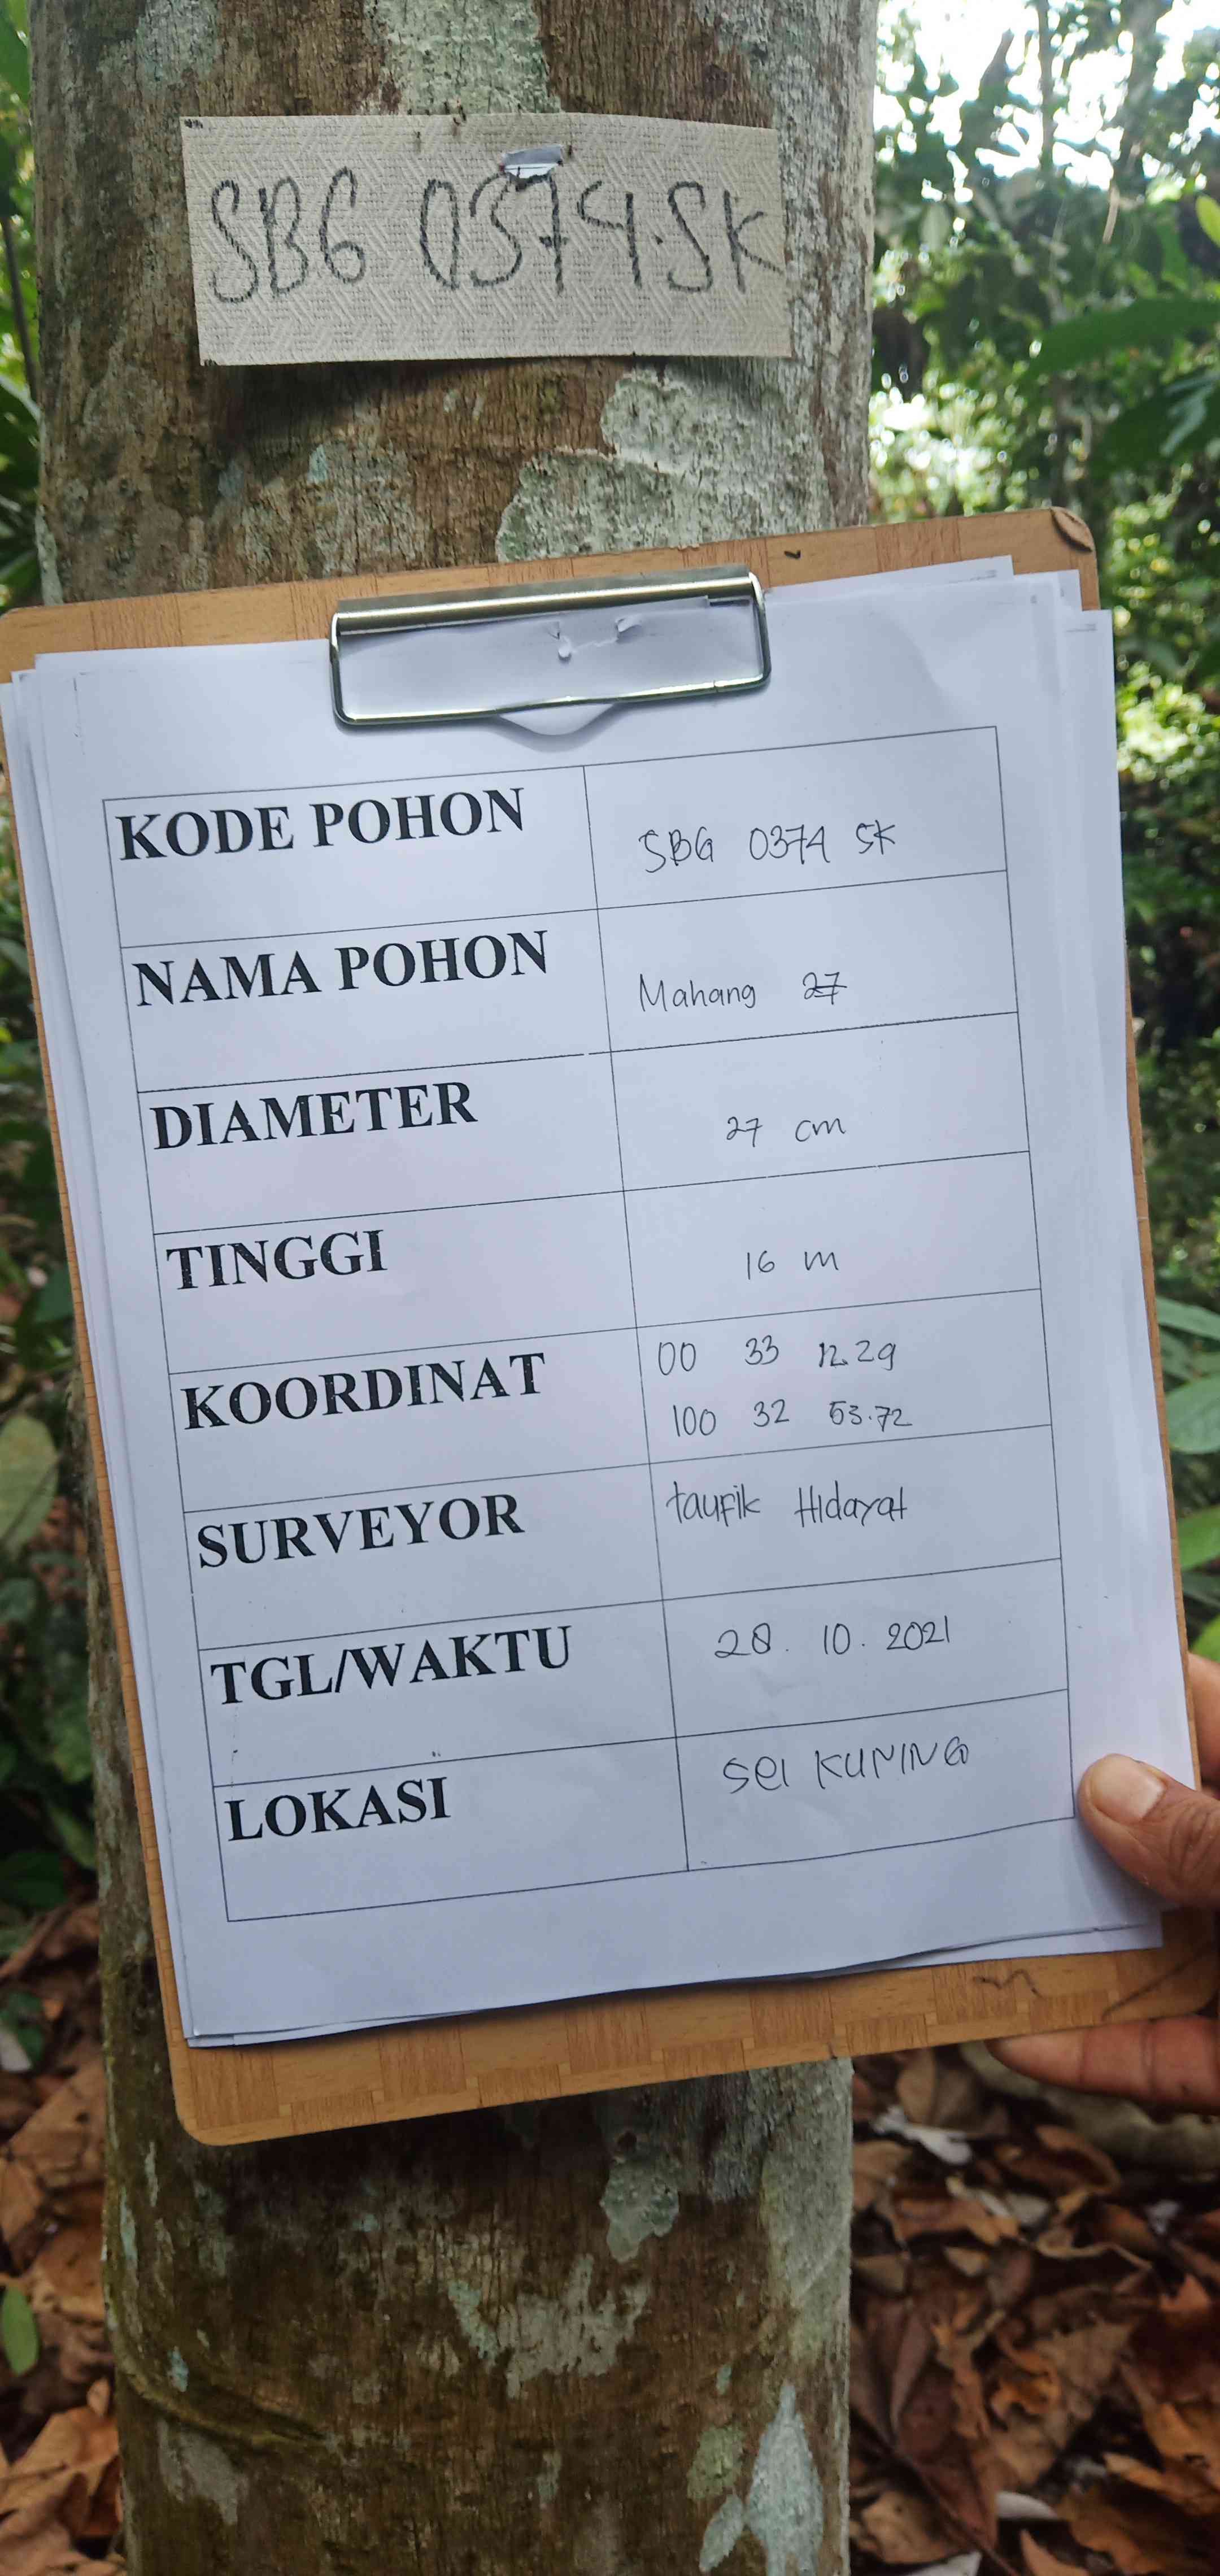 SBG 0374.SK
KODE POHON SBG 0374 SK
NAMA POHON Mahang 27
DIAMETER 27 cm
TINGGI 16 m
KOORDINAT 00 33 12.29
100 32 53.72
SURVEYOR taufik Hidayat
TGL/WAKTU 28. 10. 2021
LOKASI Sei KUNING